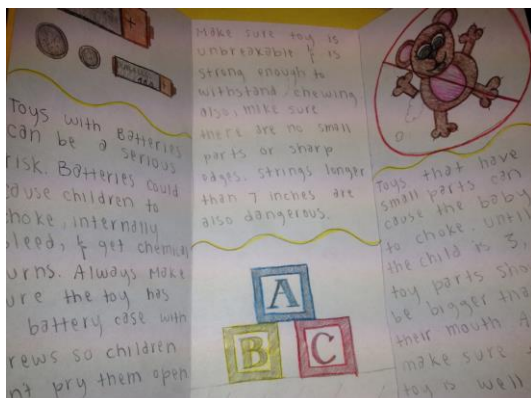 Toys with Batteries
can be a serious
risk. Batteries could
cause children to
choke, internally
bleed, & get chemical
burns. Always make
sure the toy has
battery case with
screws so children
can't pry them open
Make sure toy is
unbreakable & is
strong enough to
withstand chewing
also, make sure
there are no small
parts or sharp
edges. strings longer
than 7 inches are
also dangerous.
A
B C
Toys that have
small parts can
cause the baby
to choke. until
the child is 3,
toy parts
be bigger than
their mouth
make sure
toy is well